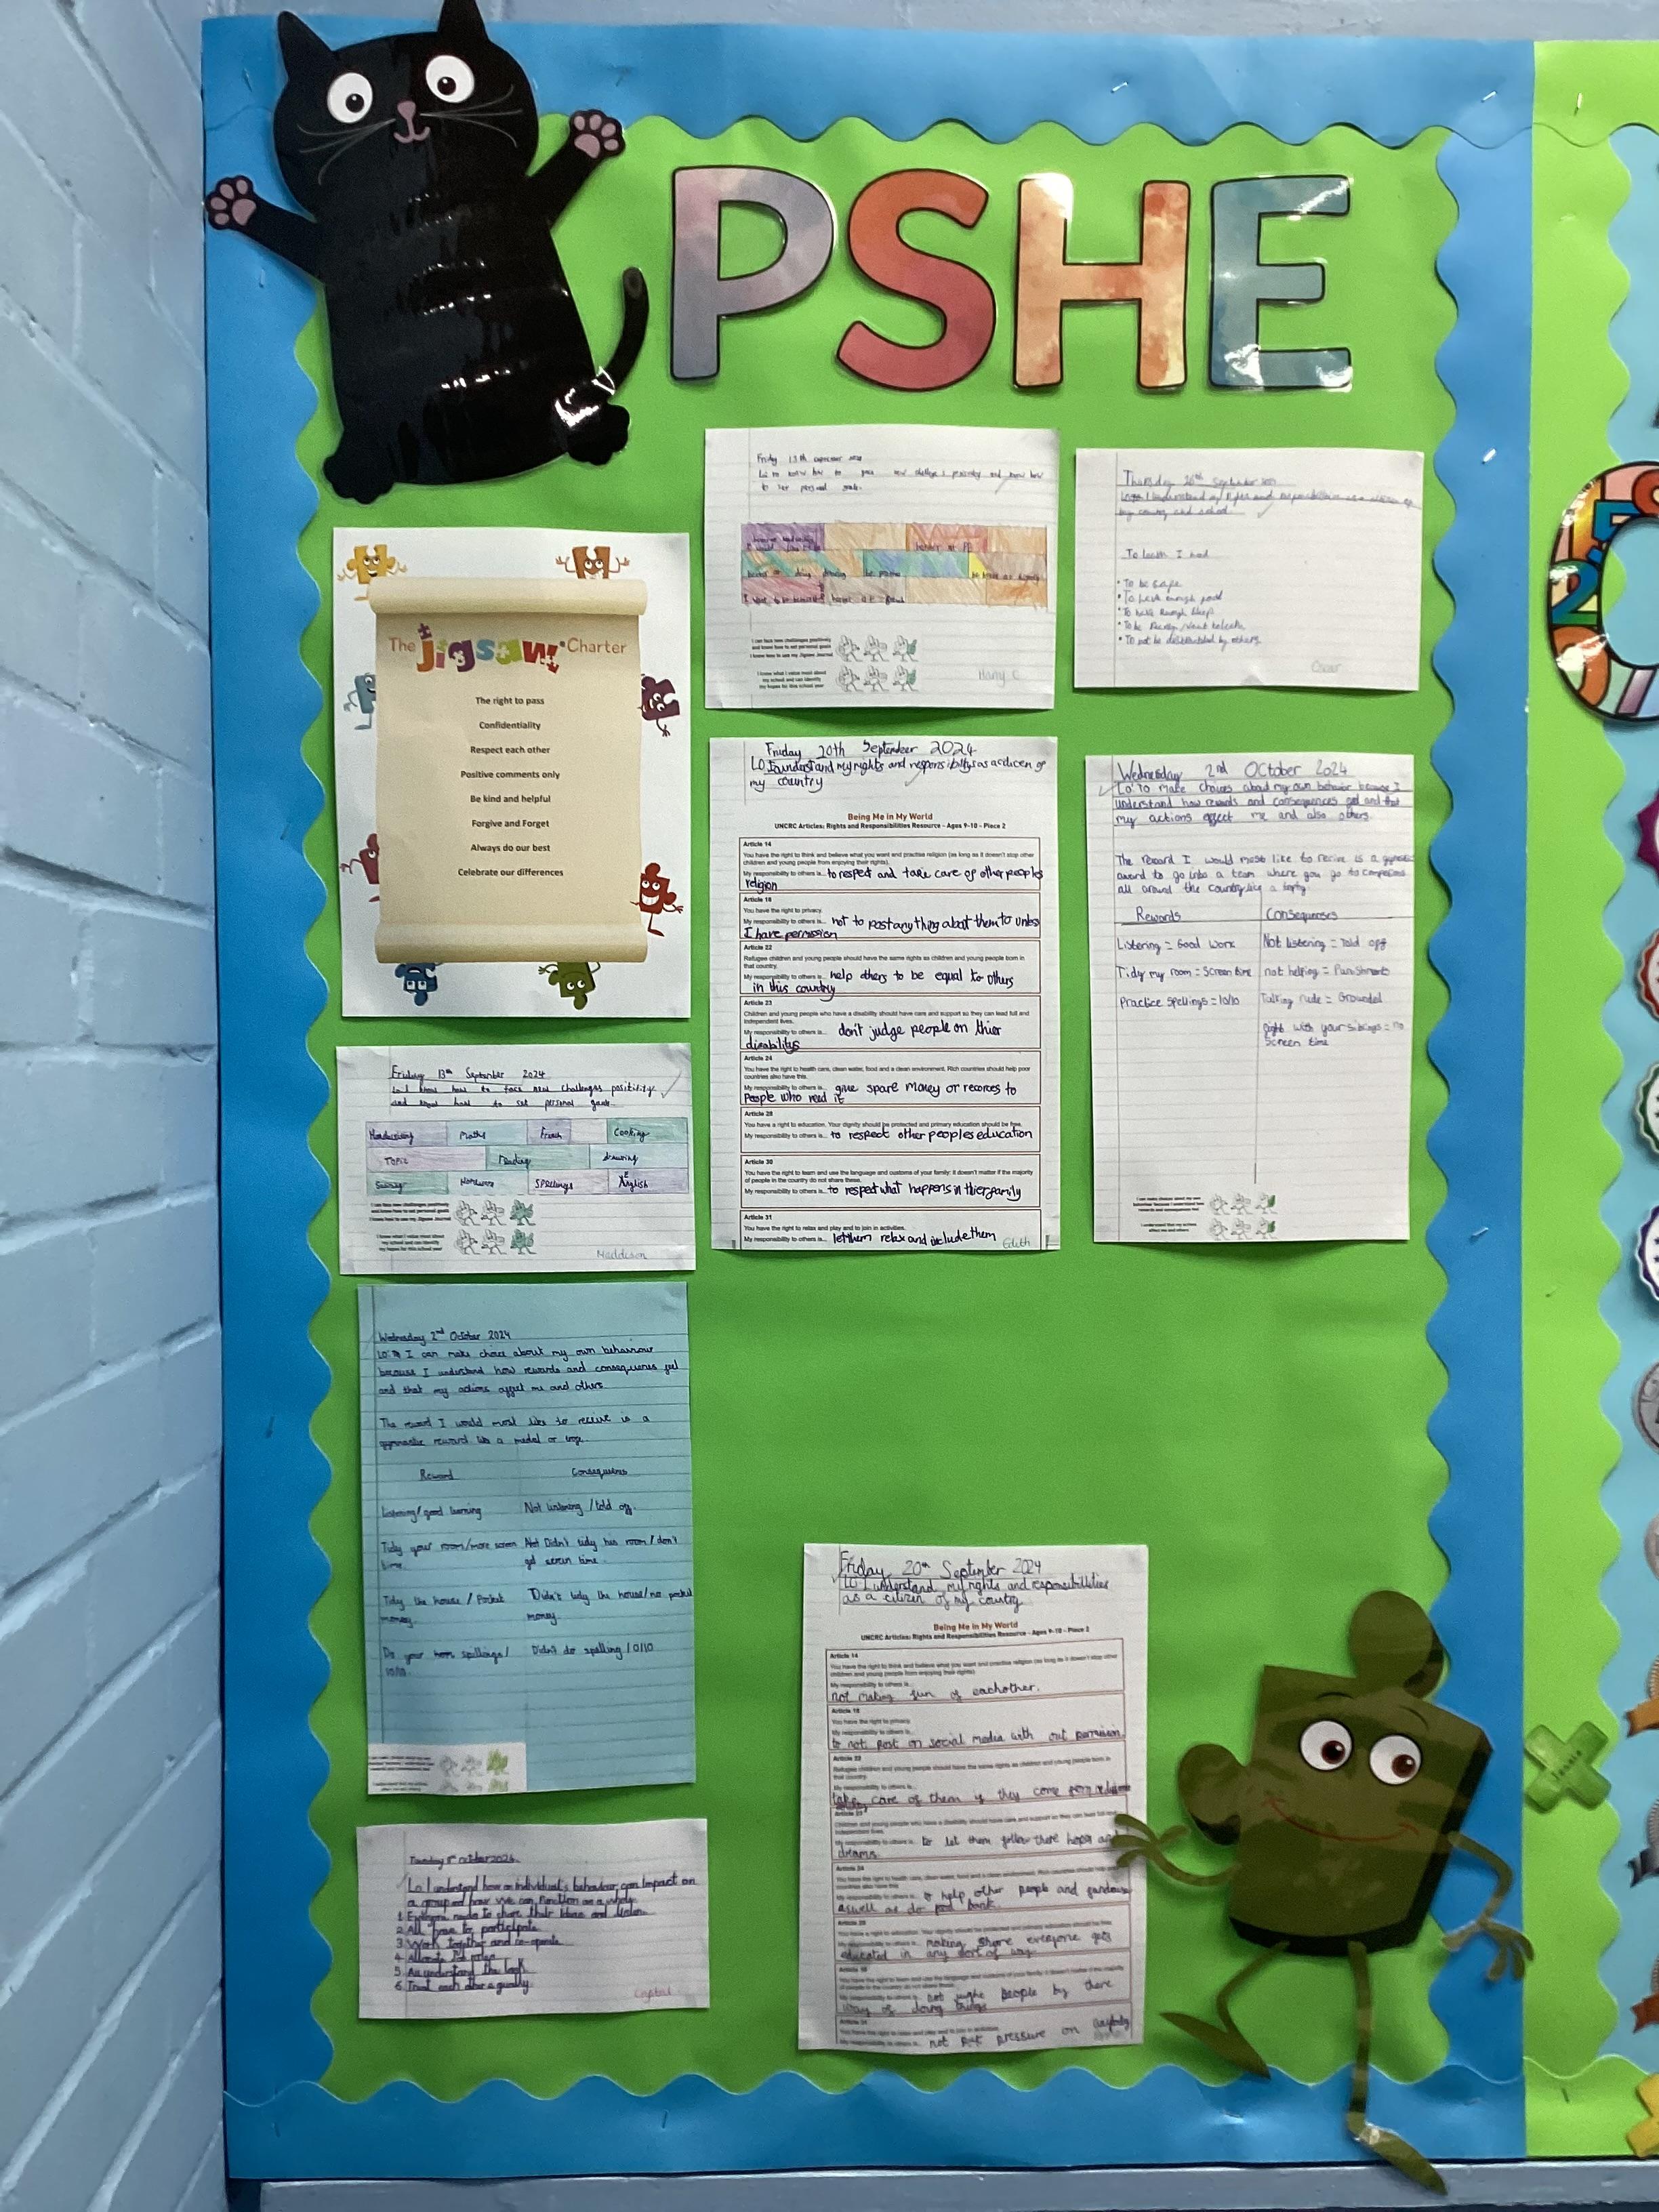 PSHE
The Jigsaw Charter
The right to pass
Confidentiality
Respect each other
Positive comments only
Be kind and helpful
Forgive and Forget
Always do our best
Celebrate our differences
Friday 13th
to
personal goals.
be
I can face new challenges positively
and know how to set personal goals
I know how to use my Jigsaw Journal
I know what I value most about
my school and can identify
my hopes for this school year
Harry C
Thursday 26th September
I understand my rights and responsibilities as a citizen of
my country and school.
To
I
• To be safe
• To have enough food
• To have enough sleep
• To be
• To not be by others.
Oscar
Friday 20th September 2024
LO I understand my rights and responsibiltys as a citizen of
my country
Being Me in My World
UNCRC Articles: Rights and Responsibilities Resource - Ages 9-10 - Piece 2
Article 14
You have the right to think and believe what you want and practise religion (as long as it doesn't stop other
children and young people from enjoying their rights).
My responsibility to others is... to respect and take care of other peoples
religion
Article 16
You have the right to privacy.
My responsibility to others is... not to post anything about them to unless
I have permission
Article 22
Refugee children and young people should have the same rights as children and young people born in
that country.
My responsibility to others is... help others to be equal to others
in this country
Article 23
Children and young people who have a disability should have care and support so they can lead full and
independent lives.
My responsibility to others is... don't judge people on thier
disabilitys
Article 24
You have the right to health care, clean water, food and a clean environment. Rich countries should help poor
countries also have this.
My responsibility to others is... give spare money or recorces to
people who need it
Article 28
You have a right to education. Your dignity should be protected and primary education should be free.
My responsibility to others is... to respect other peoples education
Article 30
You have the right to learn and use the language and customs of your family: it doesn't matter if the majority
of people in the country do not share these.
My responsibility to others is... to respect what happens in thier family
Article 31
You have the right to relax and play and to join in activities.
My responsibility to others is... let them relax and include them
Edith
Wednesday 2nd October 2024
Lo: To make choices about my own behavior because I
understand how rewards and consequences feel and that
my actions affect me and also others.
The reward I would most like to recive is a
award to go into a team where you go to
all around the country
Rewards
Consequenses
Listering = Good work
Not listering = told off
Tidy my room = Screen time
not helping = Punishment
Practice spellings = 10/10
Talking rude = Grounded
fight with your siblings = no
Screen time
Friday 13th September 2024
Lo: I know how to face new challenges positivity
and know how to set personal goals.
Handwriting
Maths
French
Cooking
Topic
Reading
drawing
Spellings
English
I can face new challenges positively
and know how to set personal goals
I know how to use my Jigsaw Journal
I know what I value most about
my school and can identify
my hopes for this school year
Maddison
Wednesday 2nd October 2024
LO: I can make choice about my own behaviour
because I understand how rewards and consequences feel
and that my actions affect me and others.
The reward I would most like to receive is a
gymnastic reward like a medal or
Reward
Consequences
Listening / good learning
Not listening / told off.
Tidy your room / more screen
time.
Not Didn't tidy his room / don't
get screen time.
Tidy the house / Pocket
money.
Didn't tidy the house / no pocket
money.
Do your spellings /
10/10
Didn't do spelling / 0/10
Tuesday 8th October 2024
Lo I understand how an individual's behaviour can impact on
a group
1. Everyone to share their ideas and
2. All have to participate
3. Work together and co-operate
4.
5. All understand the task
6. Treat each other equally
Crystal
Friday 20th September 2024
LO I understand my rights and responsibilities
as a citizen of my country
Being Me in My World
UNCRC Articles: Rights and Responsibilities Resource - Ages 9-10 - Piece 2
Article 14
You have the right to think and believe what you want and practise religion (as long as it doesn't stop other
children and young people from enjoying their rights).
My responsibility to others is...
not making fun of eachother.
Article 16
You have the right to privacy.
My responsibility to others is...
to not post on social media with out permision.
Refugee children and young people should have the same rights as children and young people born in
that country.
My responsibility to others is...
take care of them if they come from
Children and young people who have a disability should have care and support so they can lead full and
independent lives.
My responsibility to others is... to let them follow there hopes and
dreams.
Article 24
My responsibility to others is... to help other people and
aswell as do food bank.
My responsibility to others is... making shore everyone gets
educated in any sort of way
My responsibility to others is... not people by there
way of doing things
My responsibility to others is... not put pressure on anybody
Jessie